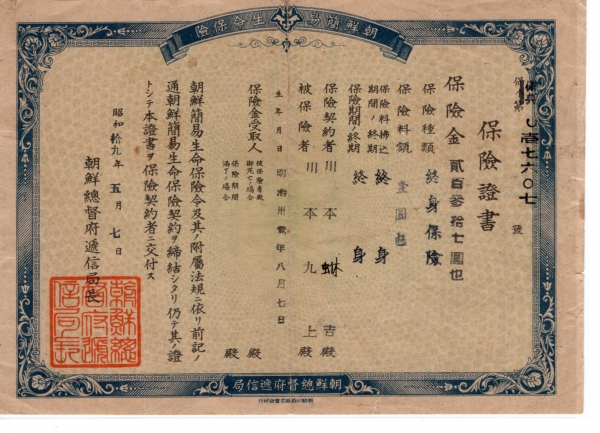 朝鮮簡易生命保險
第 し壹七六〇七 號
保險證書
保險金 貳百參拾七圓也
保險種類 終身保險
保險料額 壹圓也
保險料拂込期間ノ終期 終身
保險期間ノ終期 終身
保險契約者 川本 吉殿
被保險者 川本九上殿
生年月日 明治 年八月七日
保險金受取人
被保險者死亡ノ場合 殿
保險期間滿了ノ場合 殿
朝鮮簡易生命保險令及其ノ附屬法規ニ依リ前記ノ
通朝鮮簡易生命保險契約ヲ締結シタリ仍テ其ノ證
トシテ本證書ヲ保險契約者ニ交付ス
昭和拾九年五月七日
朝鮮總督府遞信局長
朝鮮總督府遞信局長
朝鮮總督府遞信局